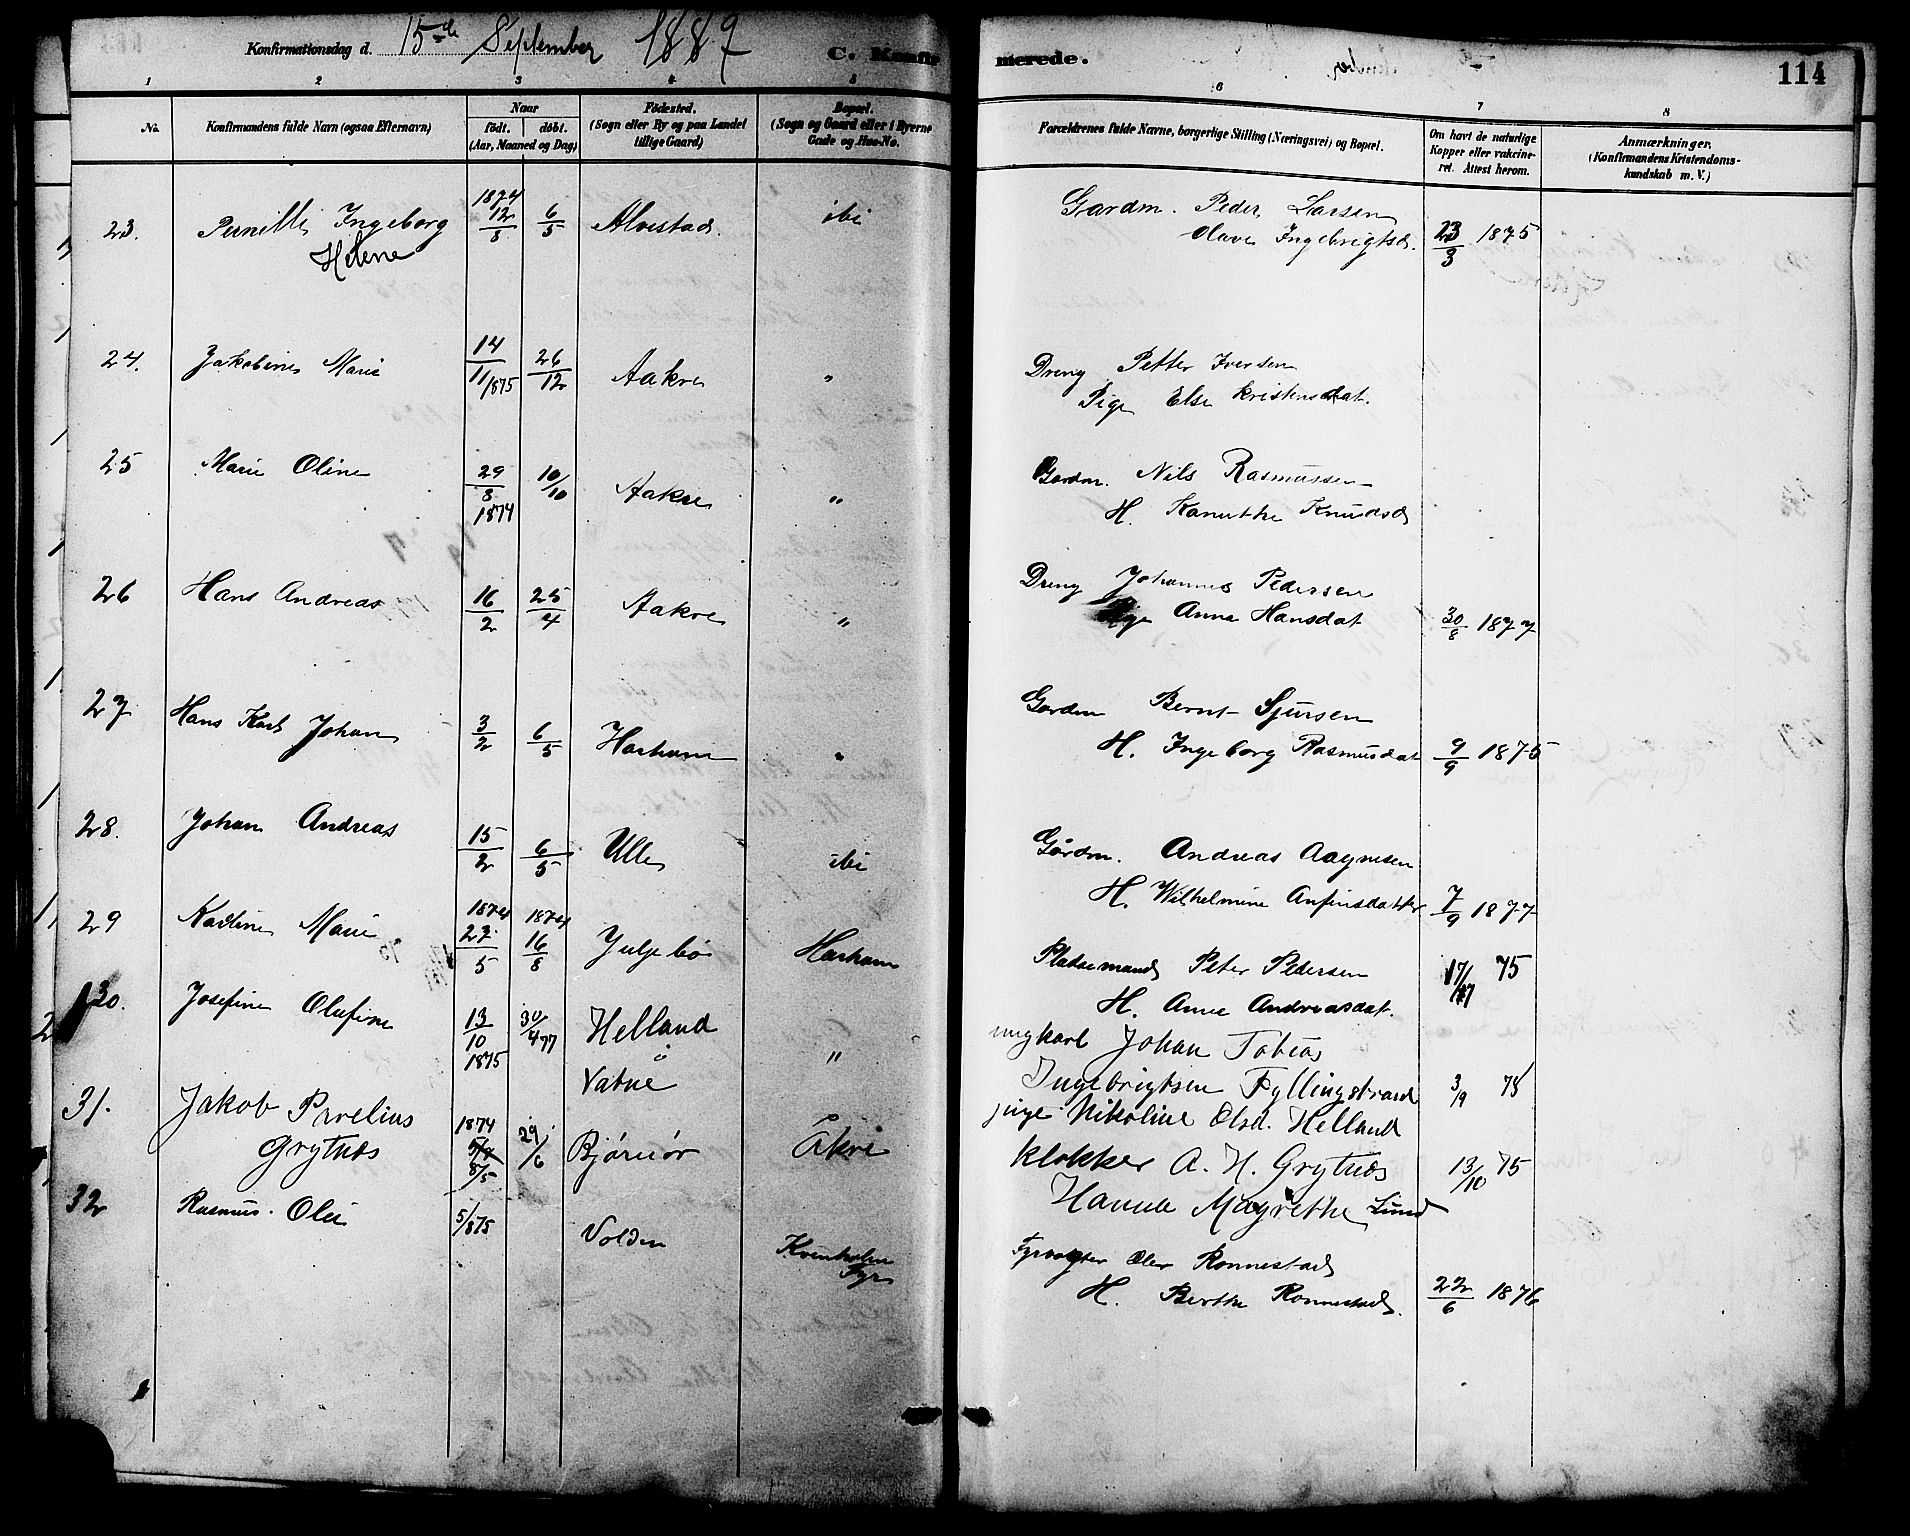 Konfirmationsdag d. 15de September 1889 C. Konfir merede. 114
1 2 3 4 5 6 7 8
No. Konfirmandens fulde Navn (ogsaa Efternavn) Naar født. døbt. (Aar, Maaned og Dag) Fødested. (Sogn eller By og paa Landet tillige Gaard) Bopæl. (Sogn og Gaard eller i Byerne Gade og Hus-No. Forældrenes fulde Navne, borgerlige Stilling (Næringsvei) og Bopæl. Om havt de naturlige Kopper eller vakcineret. Attest herom. Anmærkninger. (Konfirmandens Kristendomskundskab m. V.)
23. Pernille Ingeborg 1874 12/5 6/5 Alvestad. ibi Gardm. Peder Larsen
Helene Olave Ingebrigtsd. 23/3 1875
24. Jakobine Marie 14/11 1875 26/12 Aakre " Dreng Petter Iversen
Pige Else Kristensdat.
25 Marie Oline 29/8 1874 10/10 Aakre " Gardm. Nils Rasmussen
H. Kanutke Knudsd
26 Hans Andreas 16/2 25/4 Aakre " Dreng Johannes Pedersen
Pige Anna Hansdat 30/8 1877
27 Hans Karl Johan 3/2 6/5 Harham " Gardm Bernt Sjursen
H. Ingeborg Rasmusdat 9/9 1875
28. Johan Andreas 15/2 6/5 Ulle ibi Gårdm. Andreas Aagnesen
H. Wilhelmine Anfinsdatter 7/9 1877
29 Karline Marie 1874 27/5 1874 16/8 Juljebø Harham Pladsemand Peter Pedersen 17/ 75
H. Anne Andreasdat.
30. Josefine Olufine 13/10 1875 30/4 77 Helland " ungkarl Johan Tobias
Vatne Ingebrigtsen Fyllingstrand 3/9 78
pige Nikoline Olsd. Helland
31. Jakob Pavelius 1874 29/6 Bjørnør Åkre Klokker A. H. Grytnæs 13/10 75
Grytnæs 8/5 Hanna Magrethe Lund
32 Rasmus Olei 5/ 875 Volden Kvenholm Fyr Fyrvogter Oler Rønnestad
H. Berthe Rønnestad. 22/6 1876